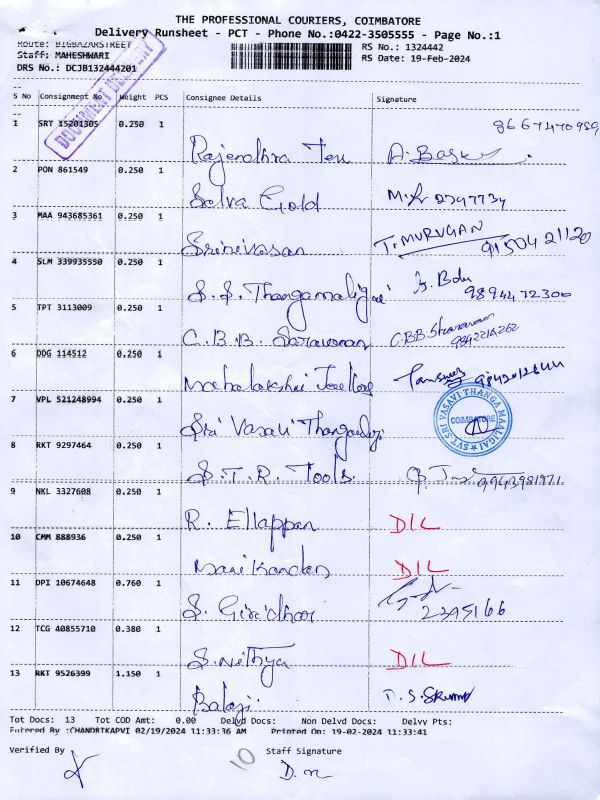 THE PROFESSIONAL COURIERS, COIMBATORE
Delivery Runsheet - PCT - Phone No.:0422-3505555 - Page No.:1
Route: BIGBAZARSTREET RS No.: 1324442
Staff: MAHESHWARI RS Date: 19-Feb-2024
DRS No.: DCJB132444201
DOCUMENT DELIVERY
S No Consignment No Weight PCS Consignee Details Signature
1 SRT 15201305 0.250 1 8667470989
Rajendhra Tex A. Bask
2 PON 861549 0.250 1
Selva Gold 2397734
3 MAA 943685361 0.250 1 T. MURUGAN
Srinivasan 9150421120
4 SLM 339935550 0.250 1
S. S. Thangamaligai 9894472300
5 TPT 3113009 0.250 1
C. B. B. Saravanan C.BB Sharavanan
9842214262
6 DDG 114512 0.250 1
Mahalakshmi Jewellers
7 VPL 521248994 0.250 1
SVT SRI VASAVI THANGA MALIGAI COIMBATORE
Sri Vasavi Thangamaligai
8 RKT 9297464 0.250 1
S. T. R. Tools 9943981971
9 NKL 3327608 0.250 1
R. Ellappan D/L
10 CMM 888936 0.250 1
Manikandan D/L
11 DPI 10674648 0.760 1
S. Giridhar 2395166
12 TCG 40855710 0.380 1
S. Nithya D/L
13 RKT 9526399 1.150 1
Balaji
Tot Docs: 13 Tot COD Amt: 0.00 Delvd Docs: Non Delvd Docs: Delvy Pts:
Entered By :CHANDRTKAPVI 02/19/2024 11:33:36 AM Printed On: 19-02-2024 11:33:41
Verified By 10 Staff Signature
D. M